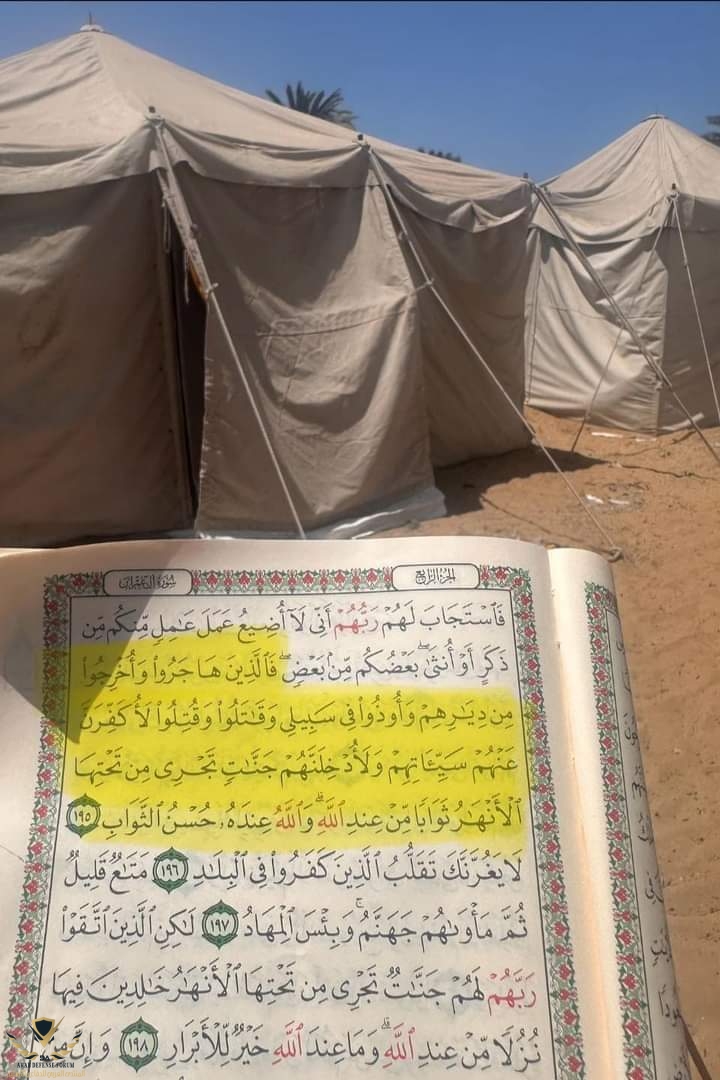 سورة آل عمران
الجزء الرابع
فَٱسْتَجَابَ لَهُمْ رَبُّهُمْ أَنِّى لَآ أُضِيعُ عَمَلَ عَٰمِلٍ مِّنكُم مِّن
ذَكَرٍ أَوْ أُنثَىٰ ۖ بَعْضُكُم مِّنۢ بَعْضٍ ۖ فَٱلَّذِينَ هَاجَرُوا۟ وَأُخْرِجُوا۟
مِن دِيَٰرِهِمْ وَأُوذُوا۟ فِى سَبِيلِى وَقَٰتَلُوا۟ وَقُتِلُوا۟ لَأُكَفِّرَنَّ
عَنْهُمْ سَيِّـَٔاتِهِمْ وَلَأُدْخِلَنَّهُمْ جَنَّٰتٍ تَجْرِى مِن تَحْتِهَا
ٱلْأَنْهَٰرُ ثَوَابًا مِّنْ عِندِ ٱللَّهِ ۗ وَٱللَّهُ عِندَهُۥ حُسْنُ ٱلثَّوَابِ ١٩٥
لَا يَغُرَّنَّكَ تَقَلُّبُ ٱلَّذِينَ كَفَرُوا۟ فِى ٱلْبِلَٰدِ ١٩٦ مَتَٰعٌ قَلِيلٌ
ثُمَّ مَأْوَىٰهُمْ جَهَنَّمُ ۚ وَبِئْسَ ٱلْمِهَادُ ١٩٧ لَٰكِنِ ٱلَّذِينَ ٱتَّقَوْا۟
رَبَّهُمْ لَهُمْ جَنَّٰتٌ تَجْرِى مِن تَحْتِهَا ٱلْأَنْهَٰرُ خَٰلِدِينَ فِيهَا
نُزُلًا مِّنْ عِندِ ٱللَّهِ ۗ وَمَا عِندَ ٱللَّهِ خَيْرٌ لِّلْأَبْرَارِ ١٩٨ وَإِنَّ مِنْ
ARAB DEFENSE FORUM